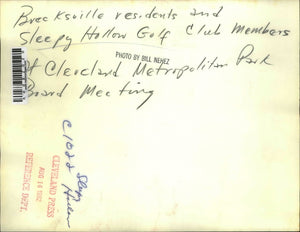 Brecksville residents and
Sleepy Hollow Golf Club Members
PHOTO BY BILL NEHEZ
At Cleveland Metropolitan Park
Board Meeting
C1022 Sleepy
Hollow
CLEVELAND PRESS
AUG 16 1972
REFERENCE DEPT.